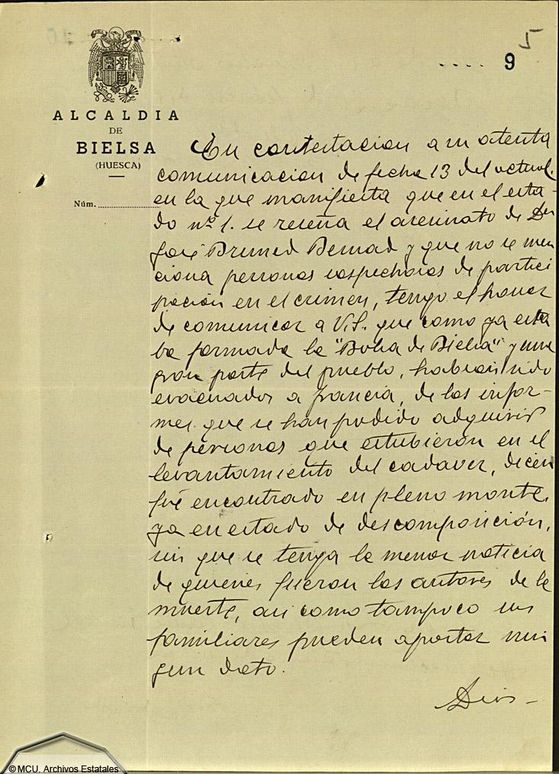 5
.... 9
ALCALDIA
DE
BIELSA
(HUESCA)
Núm.
En contestacion a su atenta
comunicacion de fecha 13 del actual
en la que manifiesta que en el esta
do nº 1. se reseña el asesinato de Don
José Brumed Bernad y que no se men
ciona personas sospechosas de partici
pacion en el crimen, tengo el honor
de comunicar a V.S. que como ya esta
ba formada la "Bolsa de Bielsa" y una
gran parte del pueblo, habian sido
evacuados a francia, de los infor-
mes que se han podido adquirir
de personas que estubieron en el
levantamiento del cadaver, dicen
fué encontrado en pleno monte,
ya en estado de descomposición,
sin que se tenga la menor noticia
de quienes fueron los autores de la
muerte, asi como tampoco sus
familiares pueden aportar nin
gun dato.
Dios -
© MCU. Archivos Estatales